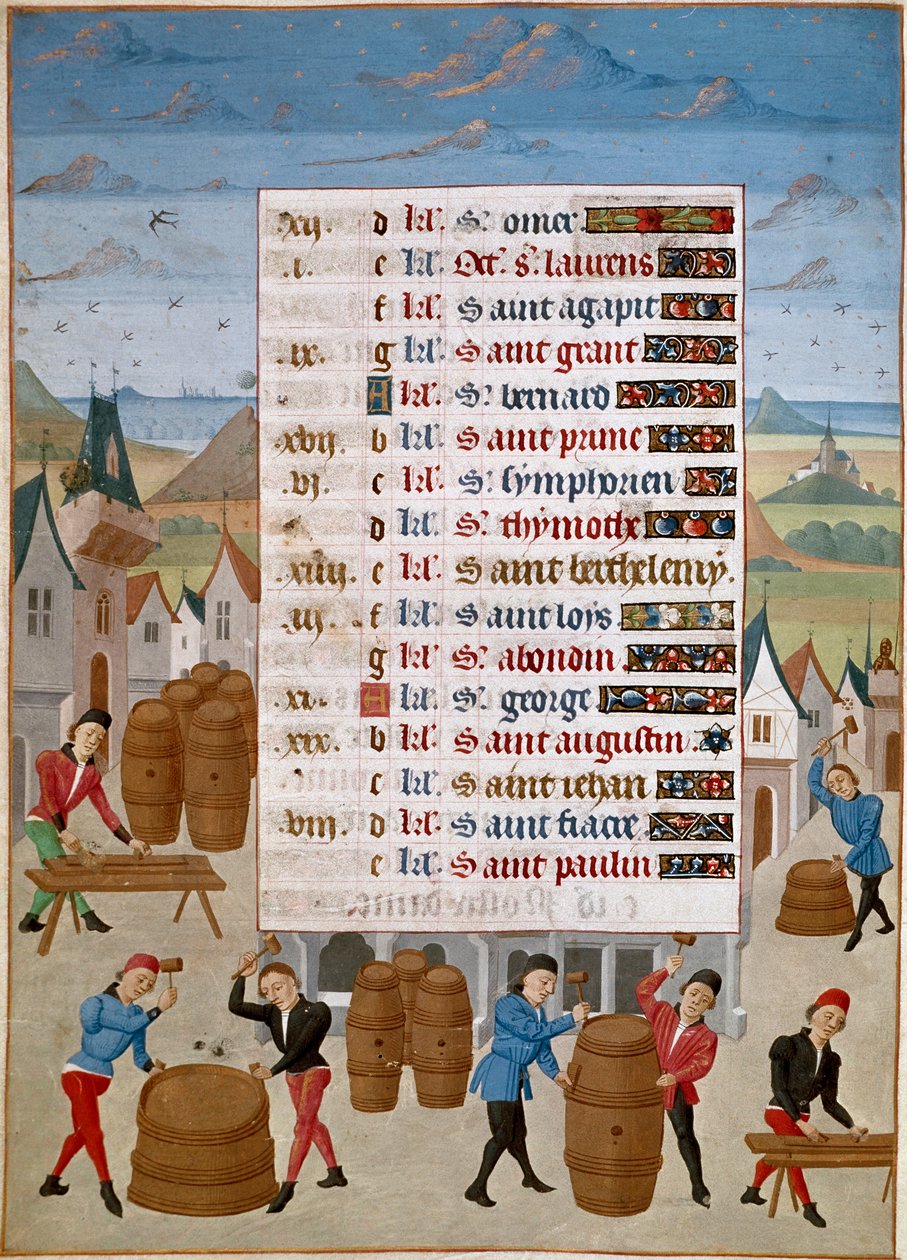 .xij. d kl'. S. omer.
.i. e kl'. Oct. s. laurens
f kl'. Saint agapit
.ix. g kl'. Saint grant
A kl'. S. bernard
.xvij. b kl'. Saint prime
.vj. c kl'. S. symphorien
d kl'. S. thymothe
.xiiij. e kl'. Saint berthelemy.
.iij. f kl'. Saint loys.
g kl'. S. abondin.
.xi. A kl'. S. george.
.xix. b kl'. Saint augustin.
c kl'. Saint iehan
.viij. d kl'. Saint fiacre.
e kl'. Saint paulin